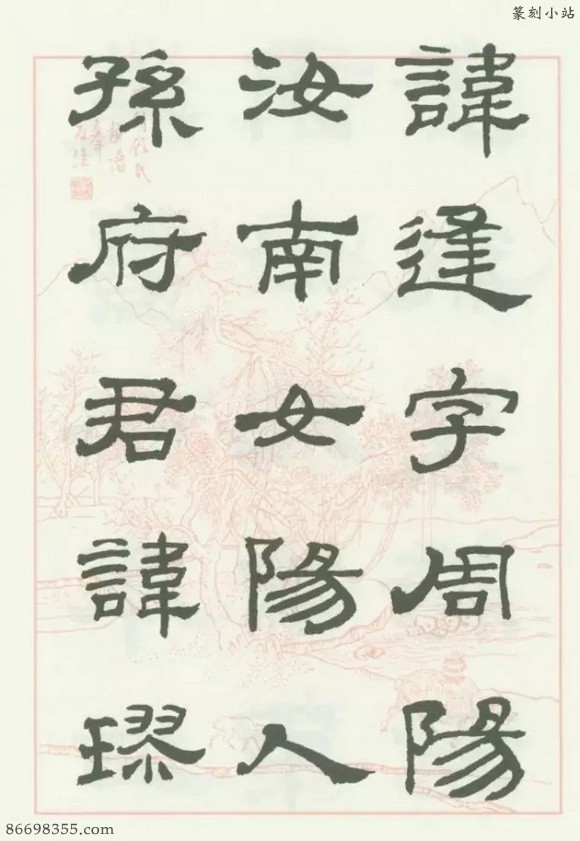 篆刻小站
諱逢字周陽
汝南女陽人
孫府君諱璆
86698355.com